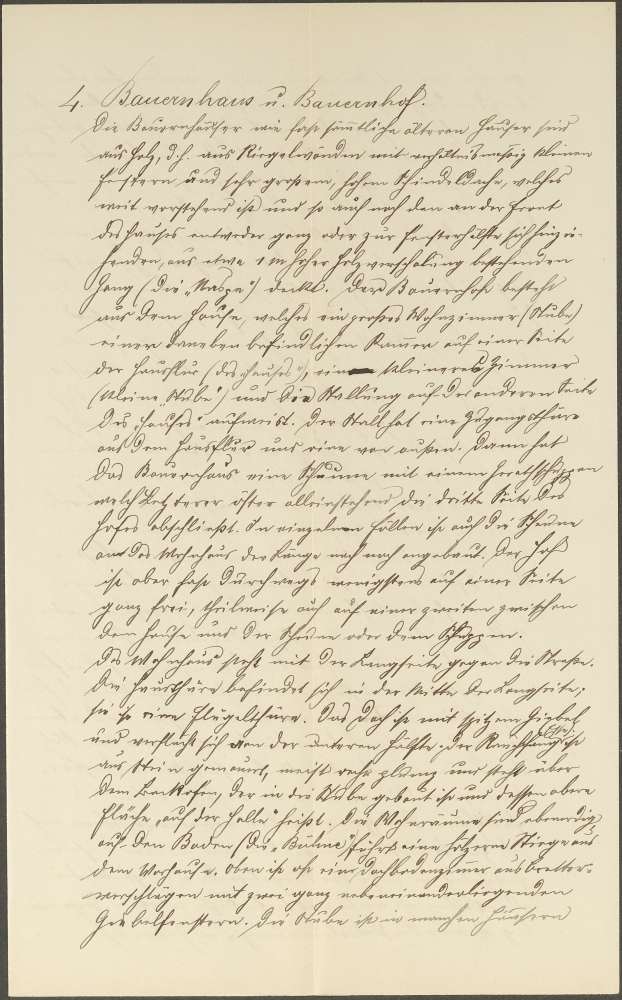 4. Bauernhaus u. Bauernhof.
Die Bauernhäuser wie fast sämmtliche älteren Häuser sind
aus Holz, d.h. aus Riegelwänden mit verhältnismäßig kleinen
Fenstern und sehr großem, hohem Schindeldache, welches
weit vorstehend ist und so auch noch den an der Front
des Hauses entweder ganz oder zur Fensterhälfte sich hinzie-
henden, aus etwa 1 m hoher Holzverschalung bestehenden
Gang (die „ ") deckt. Der Bauernhof besteht
aus dem Hause, welches ein großes Wohnzimmer (Stube)
einer daneben befindlichen Kammer auf einer Seite
der Hausflur (des „Hauses"), ein kleineres Zimmer
(kleine „Stube") und die Stallung auf der anderen Seite
des „Hauses" aufweist. Der Stall hat eine Zugangsthüre
aus dem Hausflur und eine von außen. Dann hat
das Bauernhaus eine Scheune mit einem Geräthschuppen
welch letzterer öfter alleinstehend die dritte Seite des
Hofes abschließt. In einzelnen Fällen ist auch die Scheune
an das Wohnhaus der Länge nach noch angebaut. Der Hof
ist aber fast durchwegs wenigstens auf einer Seite
ganz frei, theilweise auch auf einer zweiten zwischen
dem Hause und der Scheune oder dem Schuppen.
Das Wohnhaus steht mit der Langseite gegen die Straße.
Die Hausthüre befindet sich in der Mitte der Langseite;
sie ist eine Flügelthüre. Das Dach ist mit spitzem Giebel
und verflacht sich von der unteren Hälfte. Der Rauchfang ist
aus Stein gemauert, meist sehr plump und steht über
dem Backofen, der in die Stube gebaut ist und dessen obere
Fläche „auf der Helle" heißt. Die Wohnräume sind ebenerdig
auf den Boden (die „Bühne") führt eine hölzerne Stiege aus
dem Vorhause. Oben ist oft eine Dachbodenzimmer aus Bretter-
verschlägen mit zwei ganz nebeneinanderliegenden
Giebelfenstern. Die Stube ist in manchen Häusern